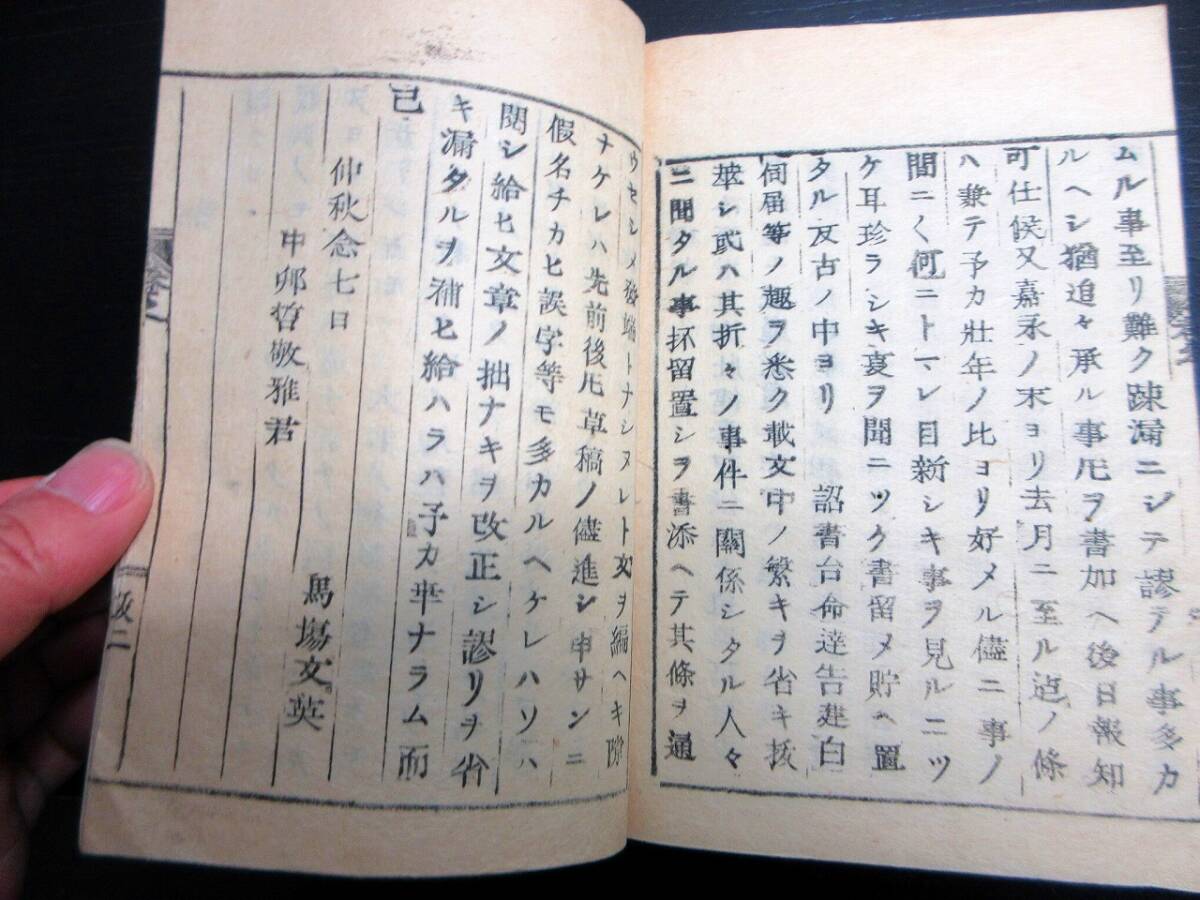 ムル事至リ難ク疎漏ニシテ謬テル事多カ
ルヘシ猶追々承ル事𪜈ヲ書加ヘ後日報知
可仕候又嘉永ノ末ヨリ去月ニ至ル迠ノ條
ハ兼テ予カ壯年ノ比ヨリ好メル儘ニ事ノ
間ニく何ニトマレ目新シキ事ヲ見ルニツ
ケ耳珍ラシキ叓ヲ聞ニツク書留メ貯ヘ置
タル反古ノ中ヨリ 詔書台命達告建白
伺届等ノ趣ヲ悉ク載文中ノ繁キヲ省キ抜
萃シ或ハ其折々ノ事件ニ關係シタル人々
ニ聞タル事抔留置シヲ書添ヘテ其條ヲ通
ウセシメ發端トナシヌレト文ヲ編ヘキ隙
ナケレハ先前後𪜈草稿ノ儘進シ申サンニ
假名チカヒ誤字等モ多カルヘケレハソハ
閲シ給ヒ文章ノ拙ナキヲ改正シ謬リヲ省
キ漏タルヲ補ヒ給ハラハ予カ幸ナラム而
已
仲秋念七日
馬塲文英
中卯哲敬雅君
坂二